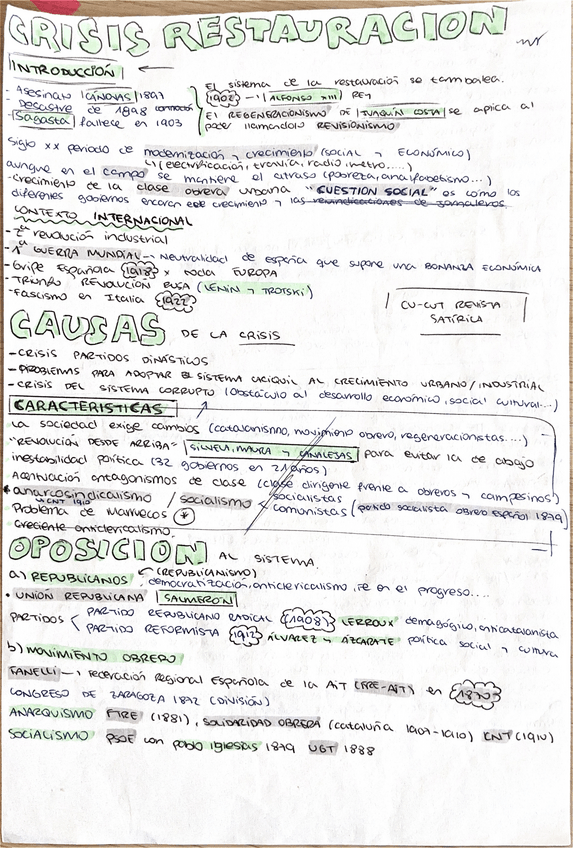 CRISIS RESTAURACION
INTRODUCCIÓN
- Asesinan CÁNOVAS 1897
- Desastre de 1898
- Sagasta fallece en 1903
El sistema de la restauración se tambalea.
1902 → ALFONSO XIII REY
El REGENERACIONISMO DE JOAQUÍN COSTA se aplica al
poder llamandolo REVISIONISMO
Siglo XX periodo de modernización y crecimiento (social y ECONÓMICO)
↳ (electrificación, tranvía, radio, metro....)
aunque en el campo se mantiene el atraso (pobreza, analfabetismo...)
- Crecimiento de la clase obrera urbana "CUESTION SOCIAL" es como los
diferentes gobiernos encaran este crecimiento y las reivindicaciones de jornaleros.
CONTEXTO INTERNACIONAL
- 2ª revolución industrial
- 1ª GUERRA MUNDIAL → Neutralidad de españa que supone una BONANZA ECONÓMICA
- Gripe Española 1918 x toda EUROPA
- TRIUNFO REVOLUCIÓN RUSA (LENIN y TROTSKI)
- Fascismo en Italia 1922
CU-CUT REVISTA
SATÍRICA
CAUSAS DE LA CRISIS
- CRISIS PARTIDOS DINÁSTICOS
- PROBLEMAS PARA ADOPTAR EL SISTEMA CACIQUIL AL CRECIMIENTO URBANO/INDUSTRIAL
- CRISIS DEL SISTEMA CORRUPTO (Obstáculo al desarrollo económico, social cultural...)
CARACTERISTICAS
La sociedad exige cambios (catalanismo, movimiento obrero, regeneracionistas....)
"REVOLUCIÓN DESDE ARRIBA" SILVELA, MAURA y CANALEJAS para evitar la de abajo
inestabilidad política (32 gobiernos en 21 años)
Acentuación antagonismos de clase (clase dirigente frente a obreros y campesinos)
• anarcosindicalismo / socialismo < socialistas
CNT 1910
comunistas (partido socialista obrero español 1879)
Problema de Marruecos *
Creciente anticlericalismo.
OPOSICION AL SISTEMA.
a) REPUBLICANOS (REPUBLICANISMO)
democratización, anticlericalismo, fe en el progreso....
• UNIÓN REPUBLICANA SALMERON
PARTIDOS < PARTIDO REPUBLICANO RADICAL 1908 LERROUX demagógico, anticatalanista
PARTIDO REFORMISTA 1912 ÁLVAREZ y AZCÁRATE política social y cultura
b) MOVIMIENTO OBRERO
FANELLI → Federación Regional Española de la AIT (FRE-AIT) en 1870
CONGRESO DE ZARAGOZA 1872 (DIVISIÓN)
ANARQUISMO FTRE (1881), SOLIDARIDAD OBRERA (cataluña 1907-1910) CNT (1910)
SOCIALISMO PSOE con pablo iglesias 1879 UGT 1888